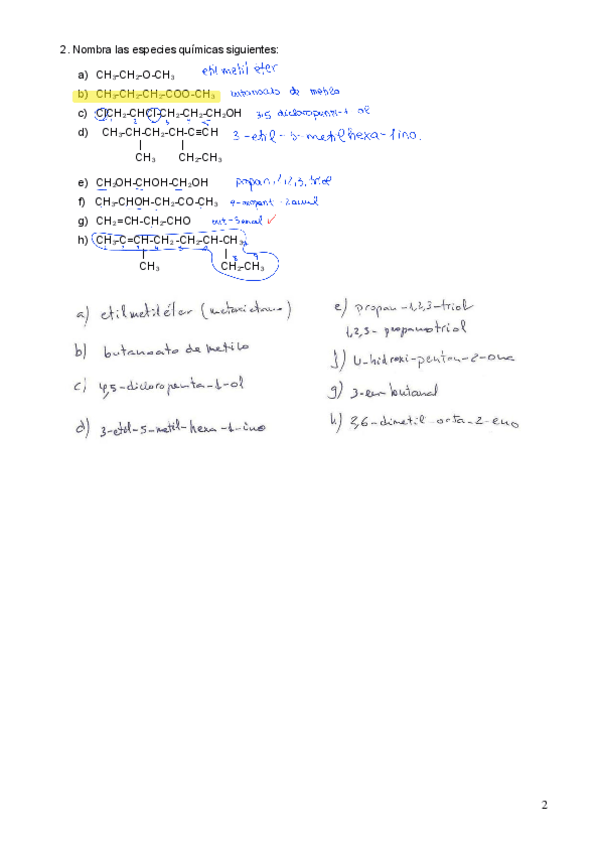 2. Nombra las especies químicas siguientes:
a) CH₃-CH₂-O-CH₃ etil metil eter
b) CH₃-CH₂-CH₂-COO-CH₃ butanoato de metilo
c) ClCH₂-CHCl-CH₂-CH₂-CH₂OH
d) CH₃-CH-CH₂-CH-C≡CH 3-etil-5-metilhexa-1ino.
CH₃ CH₂-CH₃
e) CH₂OH-CHOH-CH₂OH propan 1,2,3, triol
f) CH₃-CHOH-CH₂-CO-CH₃
g) CH₂=CH-CH₂-CHO ✓
h) CH₃-C=CH-CH₂-CH₂-CH-CH₃
CH₃ CH₂-CH₃
a) etilmetiléter (metoxietano)
b) butanoato de metilo
c) 4,5-dicloropenta-1-ol
d) 3-etil-5-metil-hexa-1-ino
e) propan-1,2,3-triol
1,2,3-propanotriol
f) 4-hidroxi-pentan-2-ona
g) 3-en butanal
h) 2,6-dimetil-octa-2-eno
2